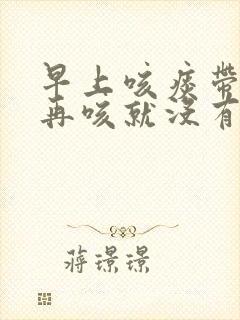 早上咳痰带
再咳就没有
蒋璟璟